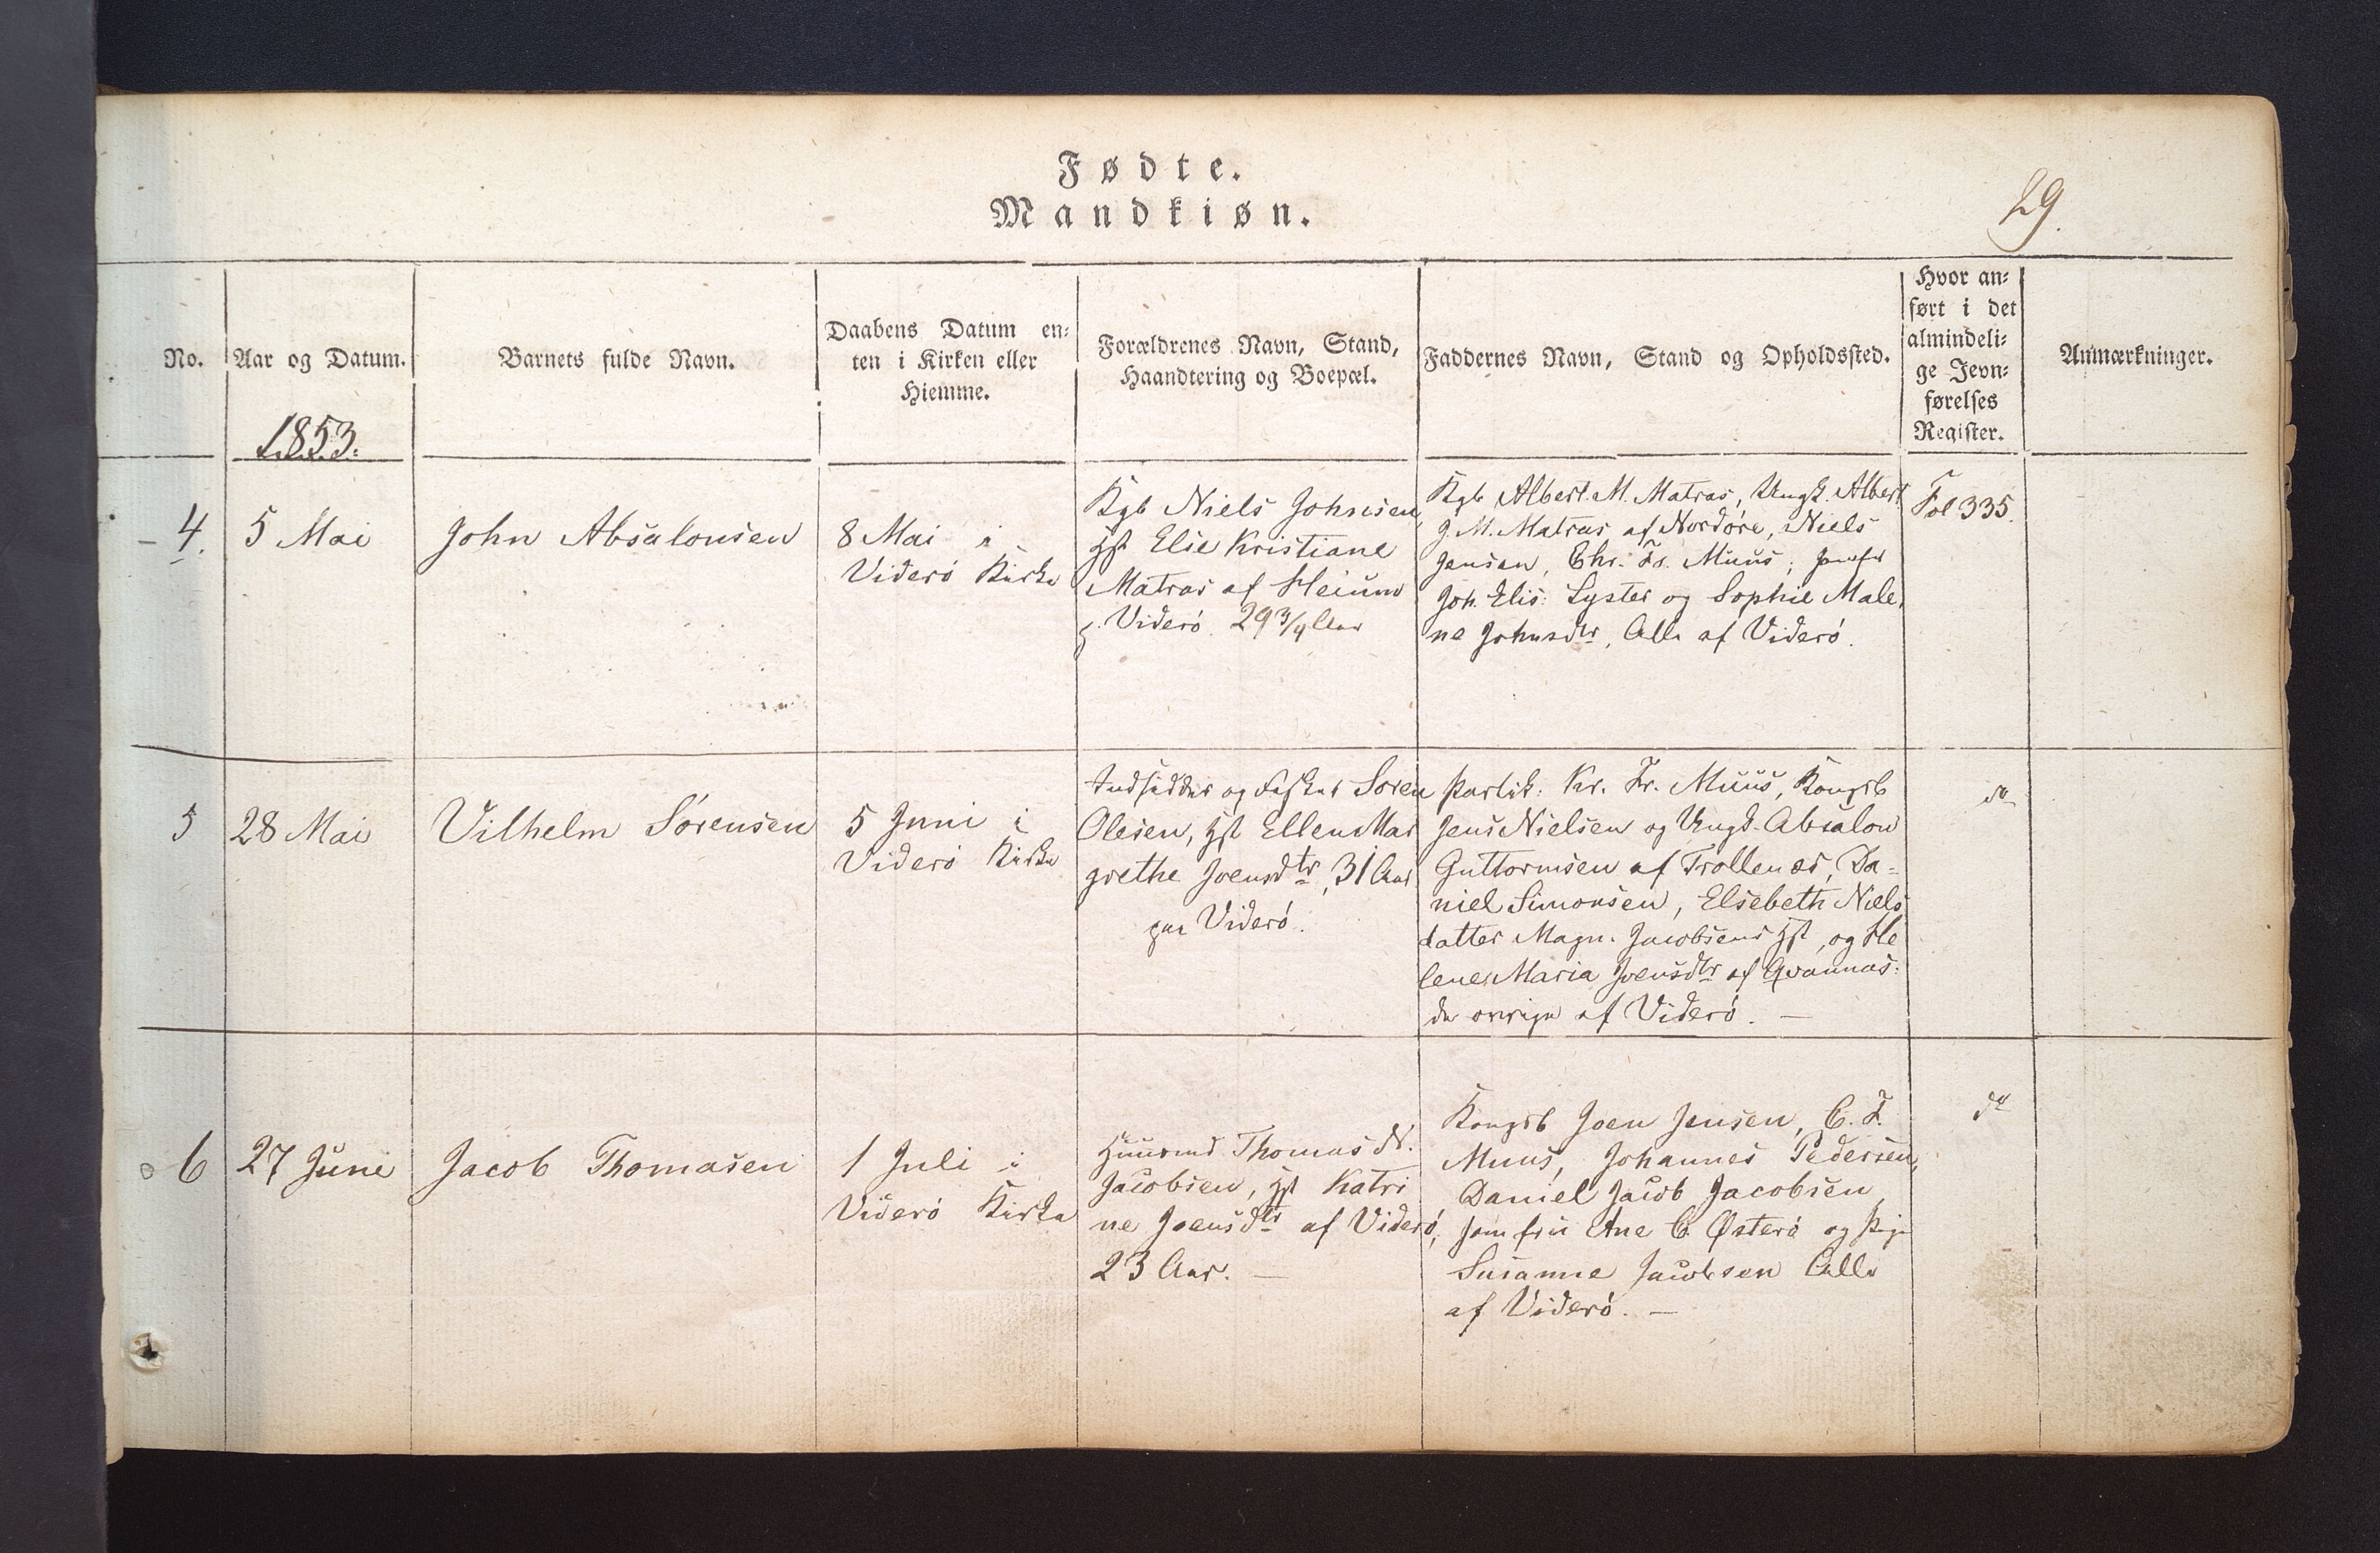 Fødte.
Mandkiøn.
29.
No.
Aar og Datum.
Barnets fulde Navn.
Daabens Datum en-
ten i Kirken eller
Hiemme.
Forældrenes Navn, Stand,
Haandtering og Boepæl.
Faddernes Navn, Stand og Opholdssted.
Hvor an-
ført i det
almindeli-
ge Jevn-
førelses
Register.
Anmærkninger.
1853.
4.
5 Mai
John Absalonsen
8 Mai i
Viderö Kirke
Kgb Niels Johnsen,
Hst Else Kristiane
Matras af
Viderö. 29 3/4 Aar
Kgb Albert M. Matras, Ungk. Albert
J. M. Matras af Nordöre, Niels
Jensen, Chr. Fr. Muus, Jomfr
Joh. Elis: Lyster og Sophie Male
ne Johnsdtr, Alle af Viderö.
Fol 335.
5
28 Mai
Vilhelm Sörensen
5 Juni i
Viderö Kirke
Indsidder og Fisker Sören
Olesen, Hst Ellen Mar
grethe Joensdtr, 31 Aar
paa Viderö.
Partik: Kr. Fr. Muus, Kongsb
Jens Nielsen og Ungk. Absalon
Guttormsen af Trollenæs, Da-
niel Simonsen, Elsebeth Niels
datter Magn. Jacobsens Hst, og He
lene Maria Joensdtr af Qvannas:
de övrige af Viderö. —
do
6
27 Juni
Jacob Thomasen
1 Juli i
Viderö Kirke
Huusmd Thomas N.
Jacobsen, Hst Katri
ne Joensdtr af Viderö,
23 Aar. —
Kongsb Joen Jensen, C. F.
Muus, Johannes Pedersen,
Daniel Jacob Jacobsen,
Jomfru Ane C. Østerö og Pige
Susanne Jacobsen Alle
af Viderö. —
do